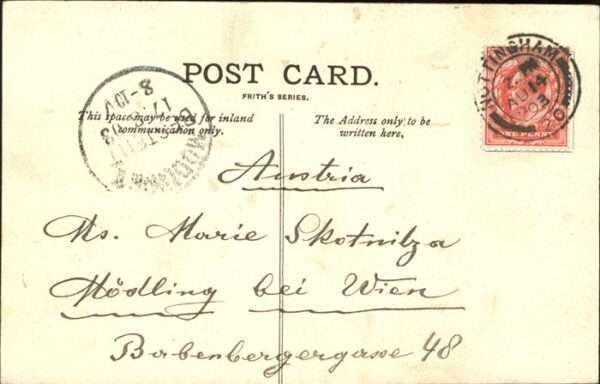 POST CARD.
FRITH'S SERIES.
This space may be used for inland
communication only.
The Address only to be
written here.
NOTTINGHAM
AU 14
03
ONE PENNY
8-10V
17
Austria
Ms. Marie Skotnitza
Mödling bei Wien
Babenbergergasse 48